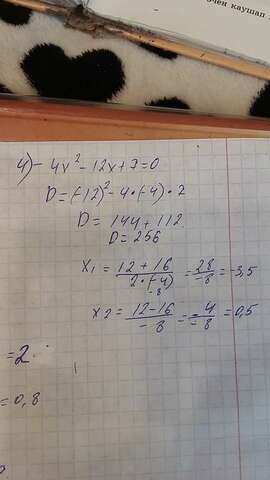 очен каушап
4) - 4x² - 12x + 7 = 0
D = (-12)² - 4 • (-4) • 7
D = 144 + 112
D = 256
x₁ = \frac{12 + 16}{2 • (-4)} = \frac{28}{-8} = -3,5
-8
x₂ = \frac{12 - 16}{-8} = \frac{-4}{-8} = 0,5
= 2
= 0,8